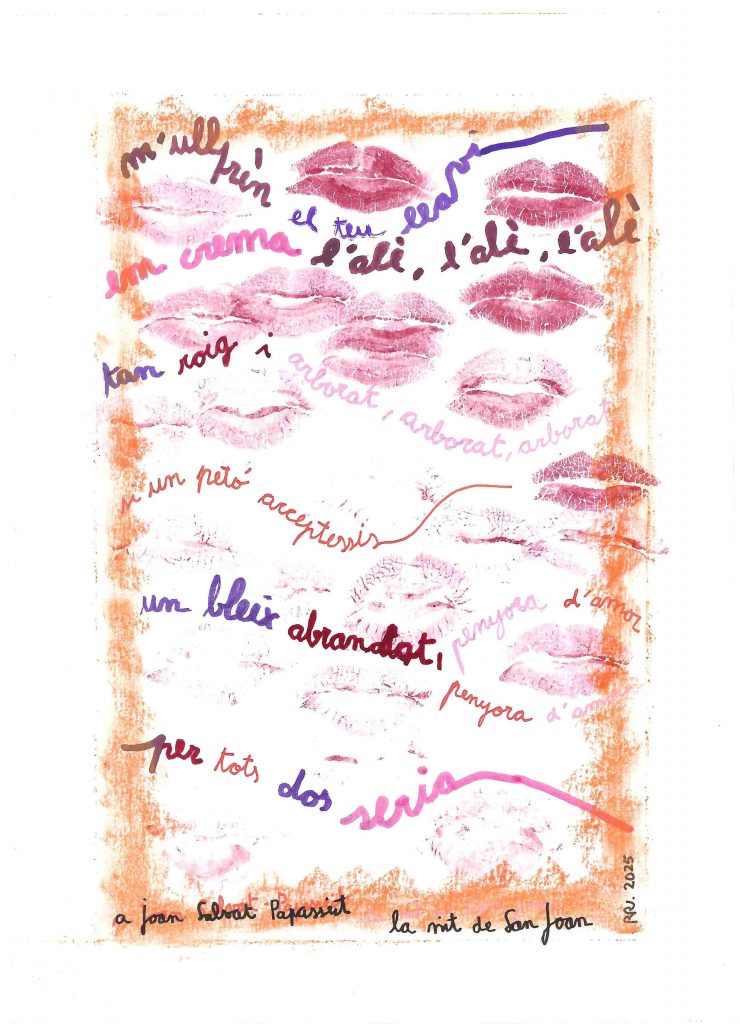 m'ullprèn el teu llavi
em crema l'alè, l'alè, l'alè
tan roig i arborat, arborat, arborat
si un petó acceptessis
un bleix abrandat, penyora d'amor
penyora d'amor
per tots dos seria
a Joan Salvat Papasseit
la nit de San Joan
2025